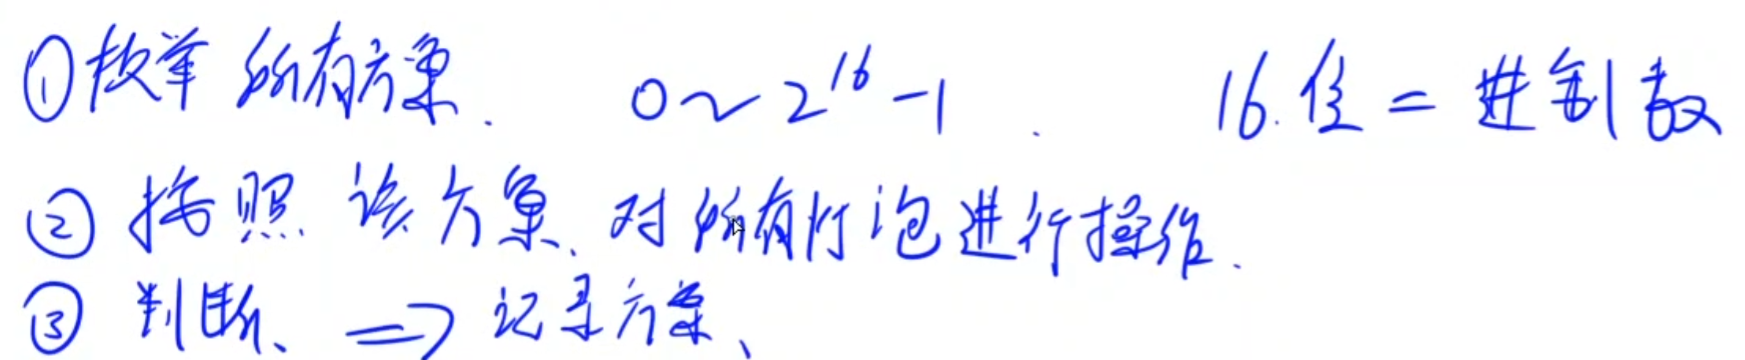 ① 枚举所有方案. 0~2^16-1. 16位二进制数
② 按照 该方案、对所有灯泡进行操作.
③ 判断、=> 记录方案、